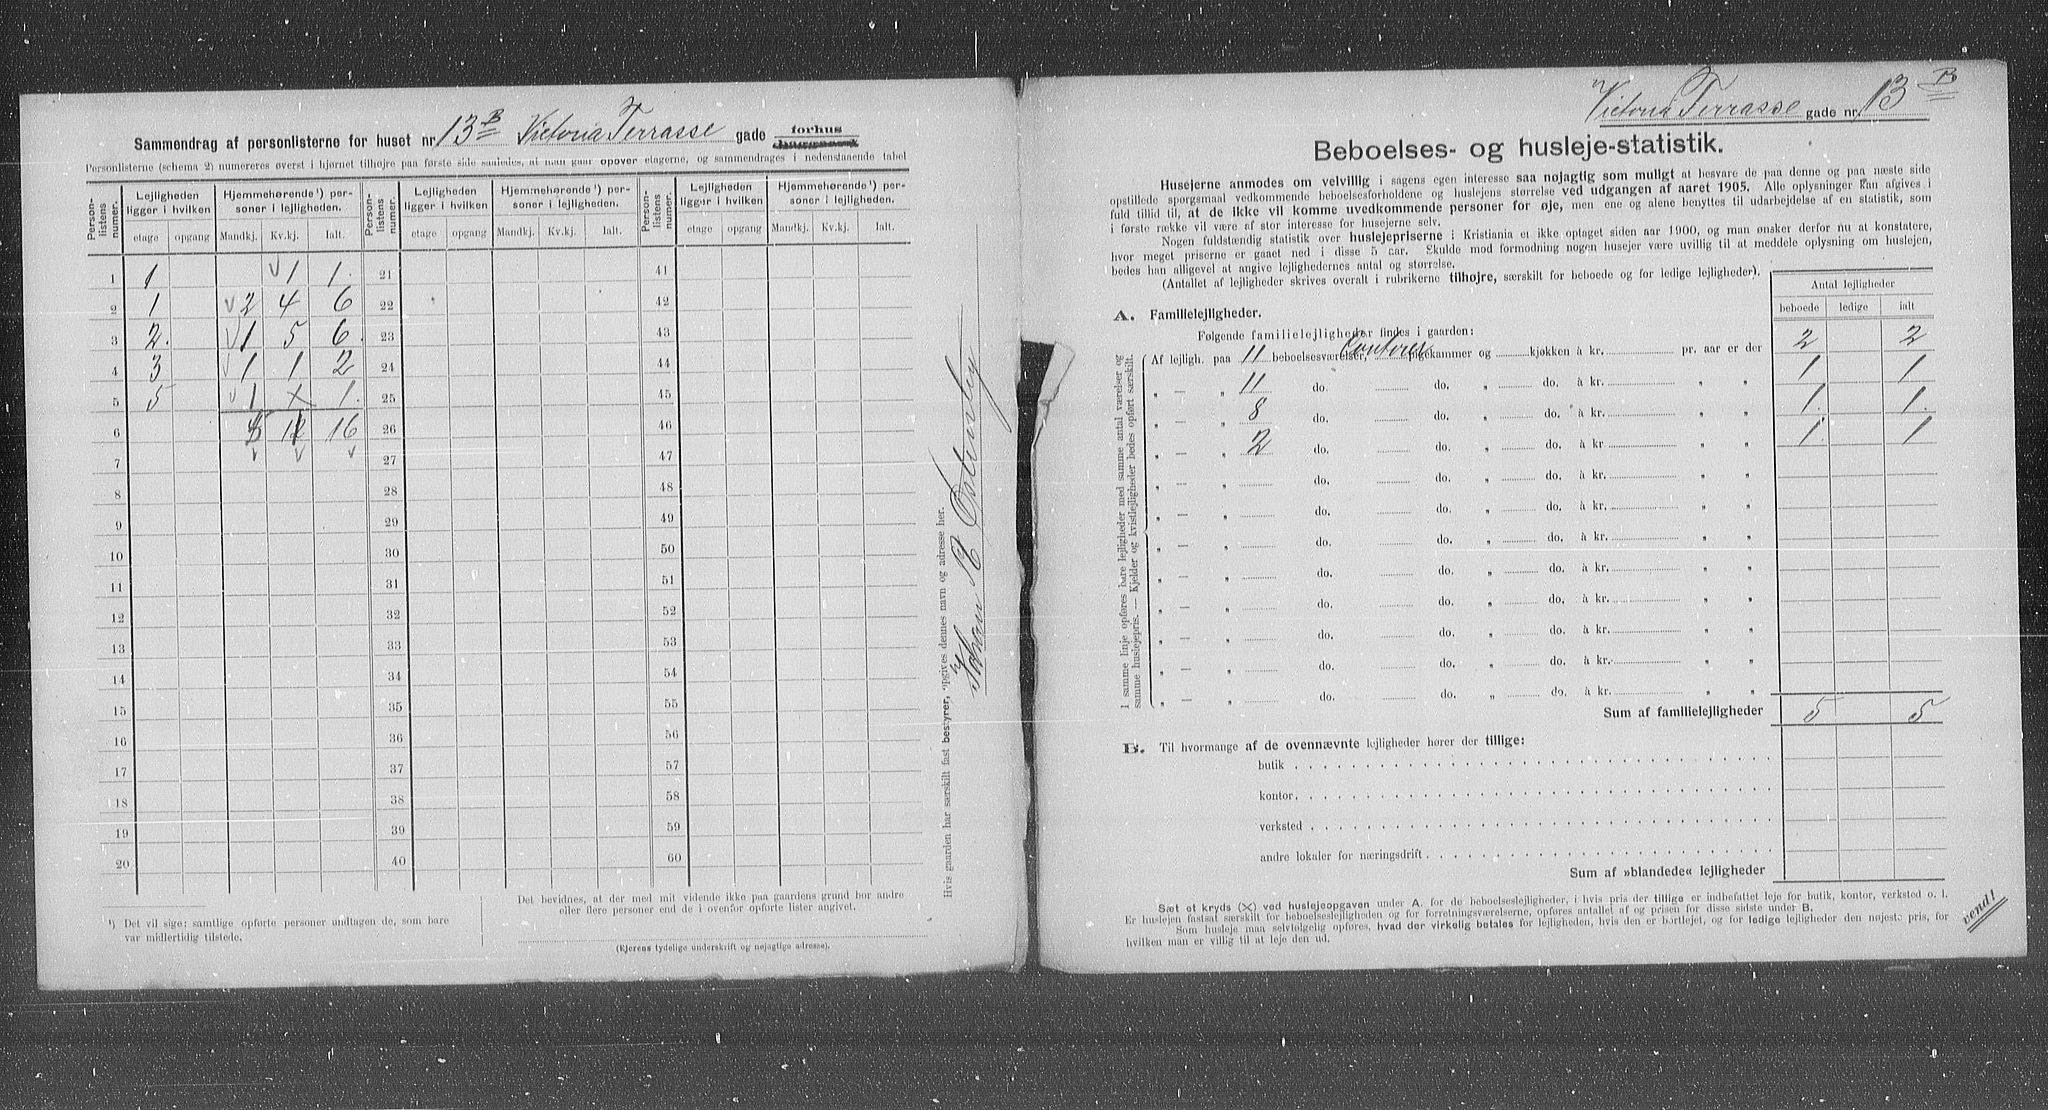 Sammendrag af personlisterne for huset nr. 13 B Victoria Terrasse gade forhus
Personlisterne (schema 2) numereres øverst i hjørnet tilhøjre paa første side saaledes, at man gaar opover etagerne, og sammendrages i nedenstaaende tabel
Person-listens numer. Lejligheden ligger i hvilken Hjemmehørende¹) personer i lejligheden. Person-listens numer. Lejligheden ligger i hvilken Hjemmehørende¹) personer i lejligheden. Person-listens numer. Lejligheden ligger i hvilken Hjemmehørende¹) personer i lejligheden.
etage opgang Mandkj. Kv.kj. Ialt. etage opgang Mandkj. Kv.kj. Ialt. etage opgang Mandkj. Kv.kj. Ialt.
1 1 √1 1. 21 41
2 1 √2 4 6 22 42
3 2. √1 5 6. 23 43
4 3 √1 1 2 24 44
5 5 √1 x 1. 25 45
6 5 12 16 26 46
7 27 47
8 28 48
9 29 49
10 30 50
11 31 51
12 32 52
13 33 53
14 34 54
15 35 55
16 36 56
17 37 57
18 38 58
19 39 59
20 40 60
¹) Det vil sige: samtlige opførte personer undtagen de, som bare
var midlertidig tilstede.
Det bevidnes, at der med mit vidende ikke paa gaardens grund bor andre
eller flere personer end de i ovenfor opførte lister angivet.
(Kjerens tydelige underskrift og nøjagtige adresse).
Hvis gaarden har særskilt fast bestyrer, opgives dennes navn og adresse her.
Johan
Victoria Terrasse gade nr. 13 B
Beboelses- og husleje-statistik.
Husejerne anmodes om velvillig i sagens egen interesse saa nøjagtig som muligt at besvare de paa denne og paa næste side
opstillede spørgsmaal vedkommende beboelsesforholdene og huslejens størrelse ved udgangen af aaret 1905. Alle oplysninger kan afgives i
fuld tillid til, at de ikke vil komme uvedkommende personer for øje, men ene og alene benyttes til udarbejdelse af en statistik, som
i første række vil være af stor interesse for husejerne selv.
Nogen fuldstændig statistik over huslejepriserne i Kristiania et ikke optaget siden aar 1900, og man ønsker derfor nu at konstatere,
hvor meget priserne er gaaet ned i disse 5 aar. Skulde mod formodning nogen husejer være uvillig til at meddele oplysning om huslejen,
bedes han alligevel at angive lejlighedernes antal og størrelse.
(Antallet af lejligheder skrives overalt i rubrikerne tilhøjre, særskilt for beboede og for ledige lejligheder).
Antal lejligheder
beboede ledige ialt
A. Familielejligheder.
Følgende familielejligheder findes i gaarden:
I samme linje opføres bare lejligheder med samme antal værelser og
samme huslejepris. — Kjelder og kvistlejligheder bedes opført særskilt.
Af lejligh. paa 11 beboelsesværelser, Contorer pigekammer og kjøkken à kr. pr. aar er der 2 2
„ — „ 11 do. do. „ do. à kr. „ „ 1 1
„ — „ 8 do. do. „ do. à kr. „ „ 1. 1.
„ — „ 2 do. do. „ do. à kr „ „ 1. 1
„ — „ do. do. „ do. à kr. „ „
„ — „ do. do. „ do. à kr. „ „
„ — „ do. do. „ do. à kr. „ „
„ — „ do. do. „ do. à kr. „ „
„ — „ do. do. „ do. à kr. „ „
„ — „ do. do. „ do. à kr. „ „
„ — „ do. do. „ do. à kr. „ „
„ — „ do. do. „ do. à kr. „ „
Sum af familielejligheder 5 5
B. Til hvormange af de ovennævnte lejligheder hører der tillige:
butik
kontor
verksted
andre lokaler for næringsdrift
Sum af »blandede« lejligheder
Sæt et kryds (×) ved huslejeopgaven under A. for de beboelseslejligheder, i hvis pris der tillige er indbefattet leje for butik, kontor, verksted o. l.
Er huslejen fastsat særskilt for beboelseslejligheden og for forretningsværelserne, opføres antallet af og prisen for disse sidste under B.
Som husleje maa selvfølgelig opføres, hvad der virkelig betales for lejligheden, hvis den er bortlejet, og for ledige lejligheder den nøjeste pris, for
hvilken man er villig til at leje den ud.
vend!